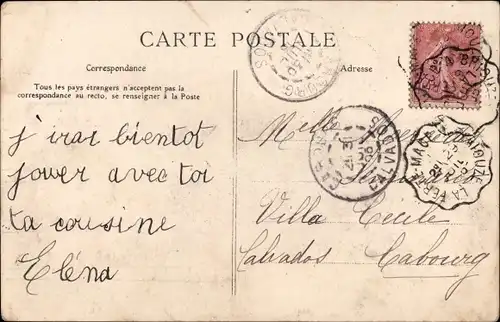 CARTE POSTALE
Correspondance
Adresse
Tous les pays étrangers n'acceptent pas la
correspondance au recto, se renseigner à la Poste
j'irai bientot
jouer avec toi
ta cousine
Eléna
Melle
Villa Cécile
Calvados Cabourg
CALVADOS
LA FERTE-MACE